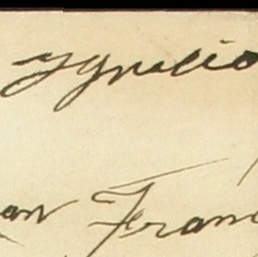 Ygnacio
an Fran